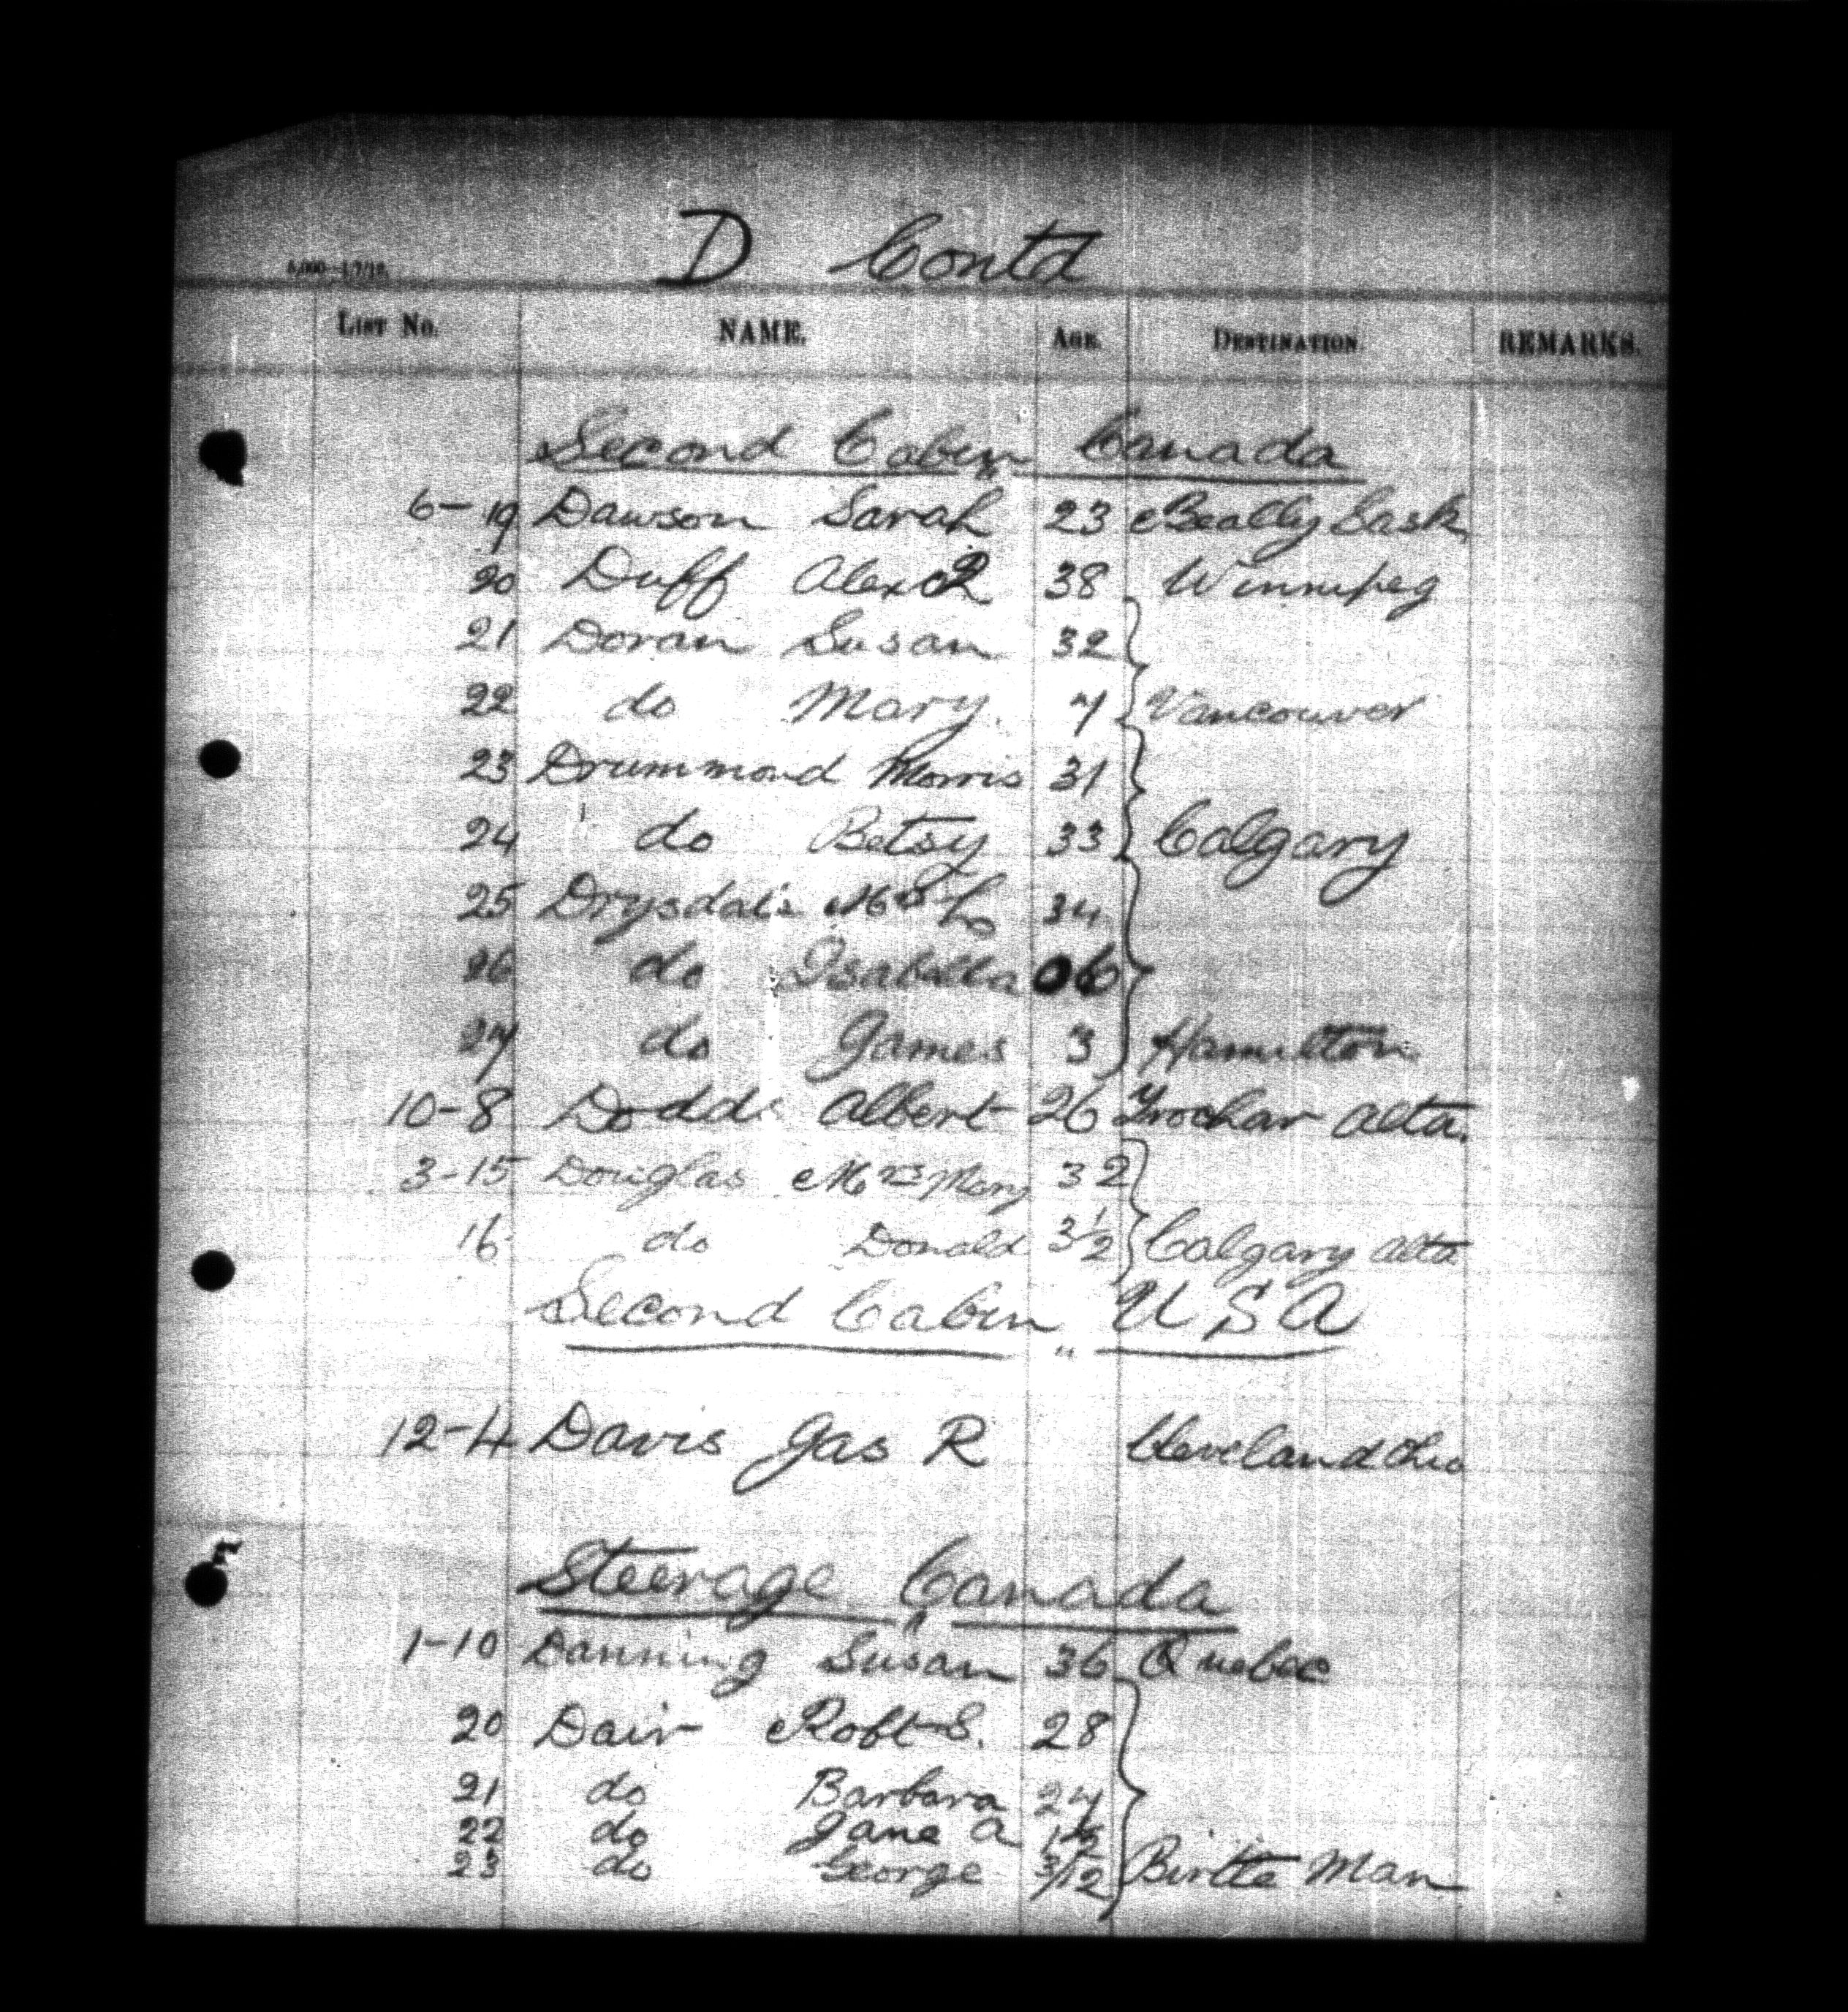 D Contd
5,000-1/7/12.
LIST No. NAME. AGE. DESTINATION. REMARKS.
Second Cabin Canada
6-19 Dawson Sarah 23 Beally Sask.
20 Duff Alex 38 Winnipeg
21 Doran Susan 32
22 do Mary. 7 Vancouver
23 Drummond Morris 31
24 do Betsy 33 Calgary
25 Drysdale Mrs 34
26 do Isabella 06
27 do James 3 Hamilton
10-8 Dodds Albert 26 Trochar Alta.
3-15 Douglas Mrs Mary 32
16 do Donald 3 1/2 Calgary Alta
Second Cabin " U S A
12-4 Davis Jas R Cleveland Ohio
Steerage Canada
1-10 Danning Susan 36 Quebec
20 Dair Robt S. 28
21 do Barbara 24
22 do Jane A
23 do George 3/12 Birtle Man